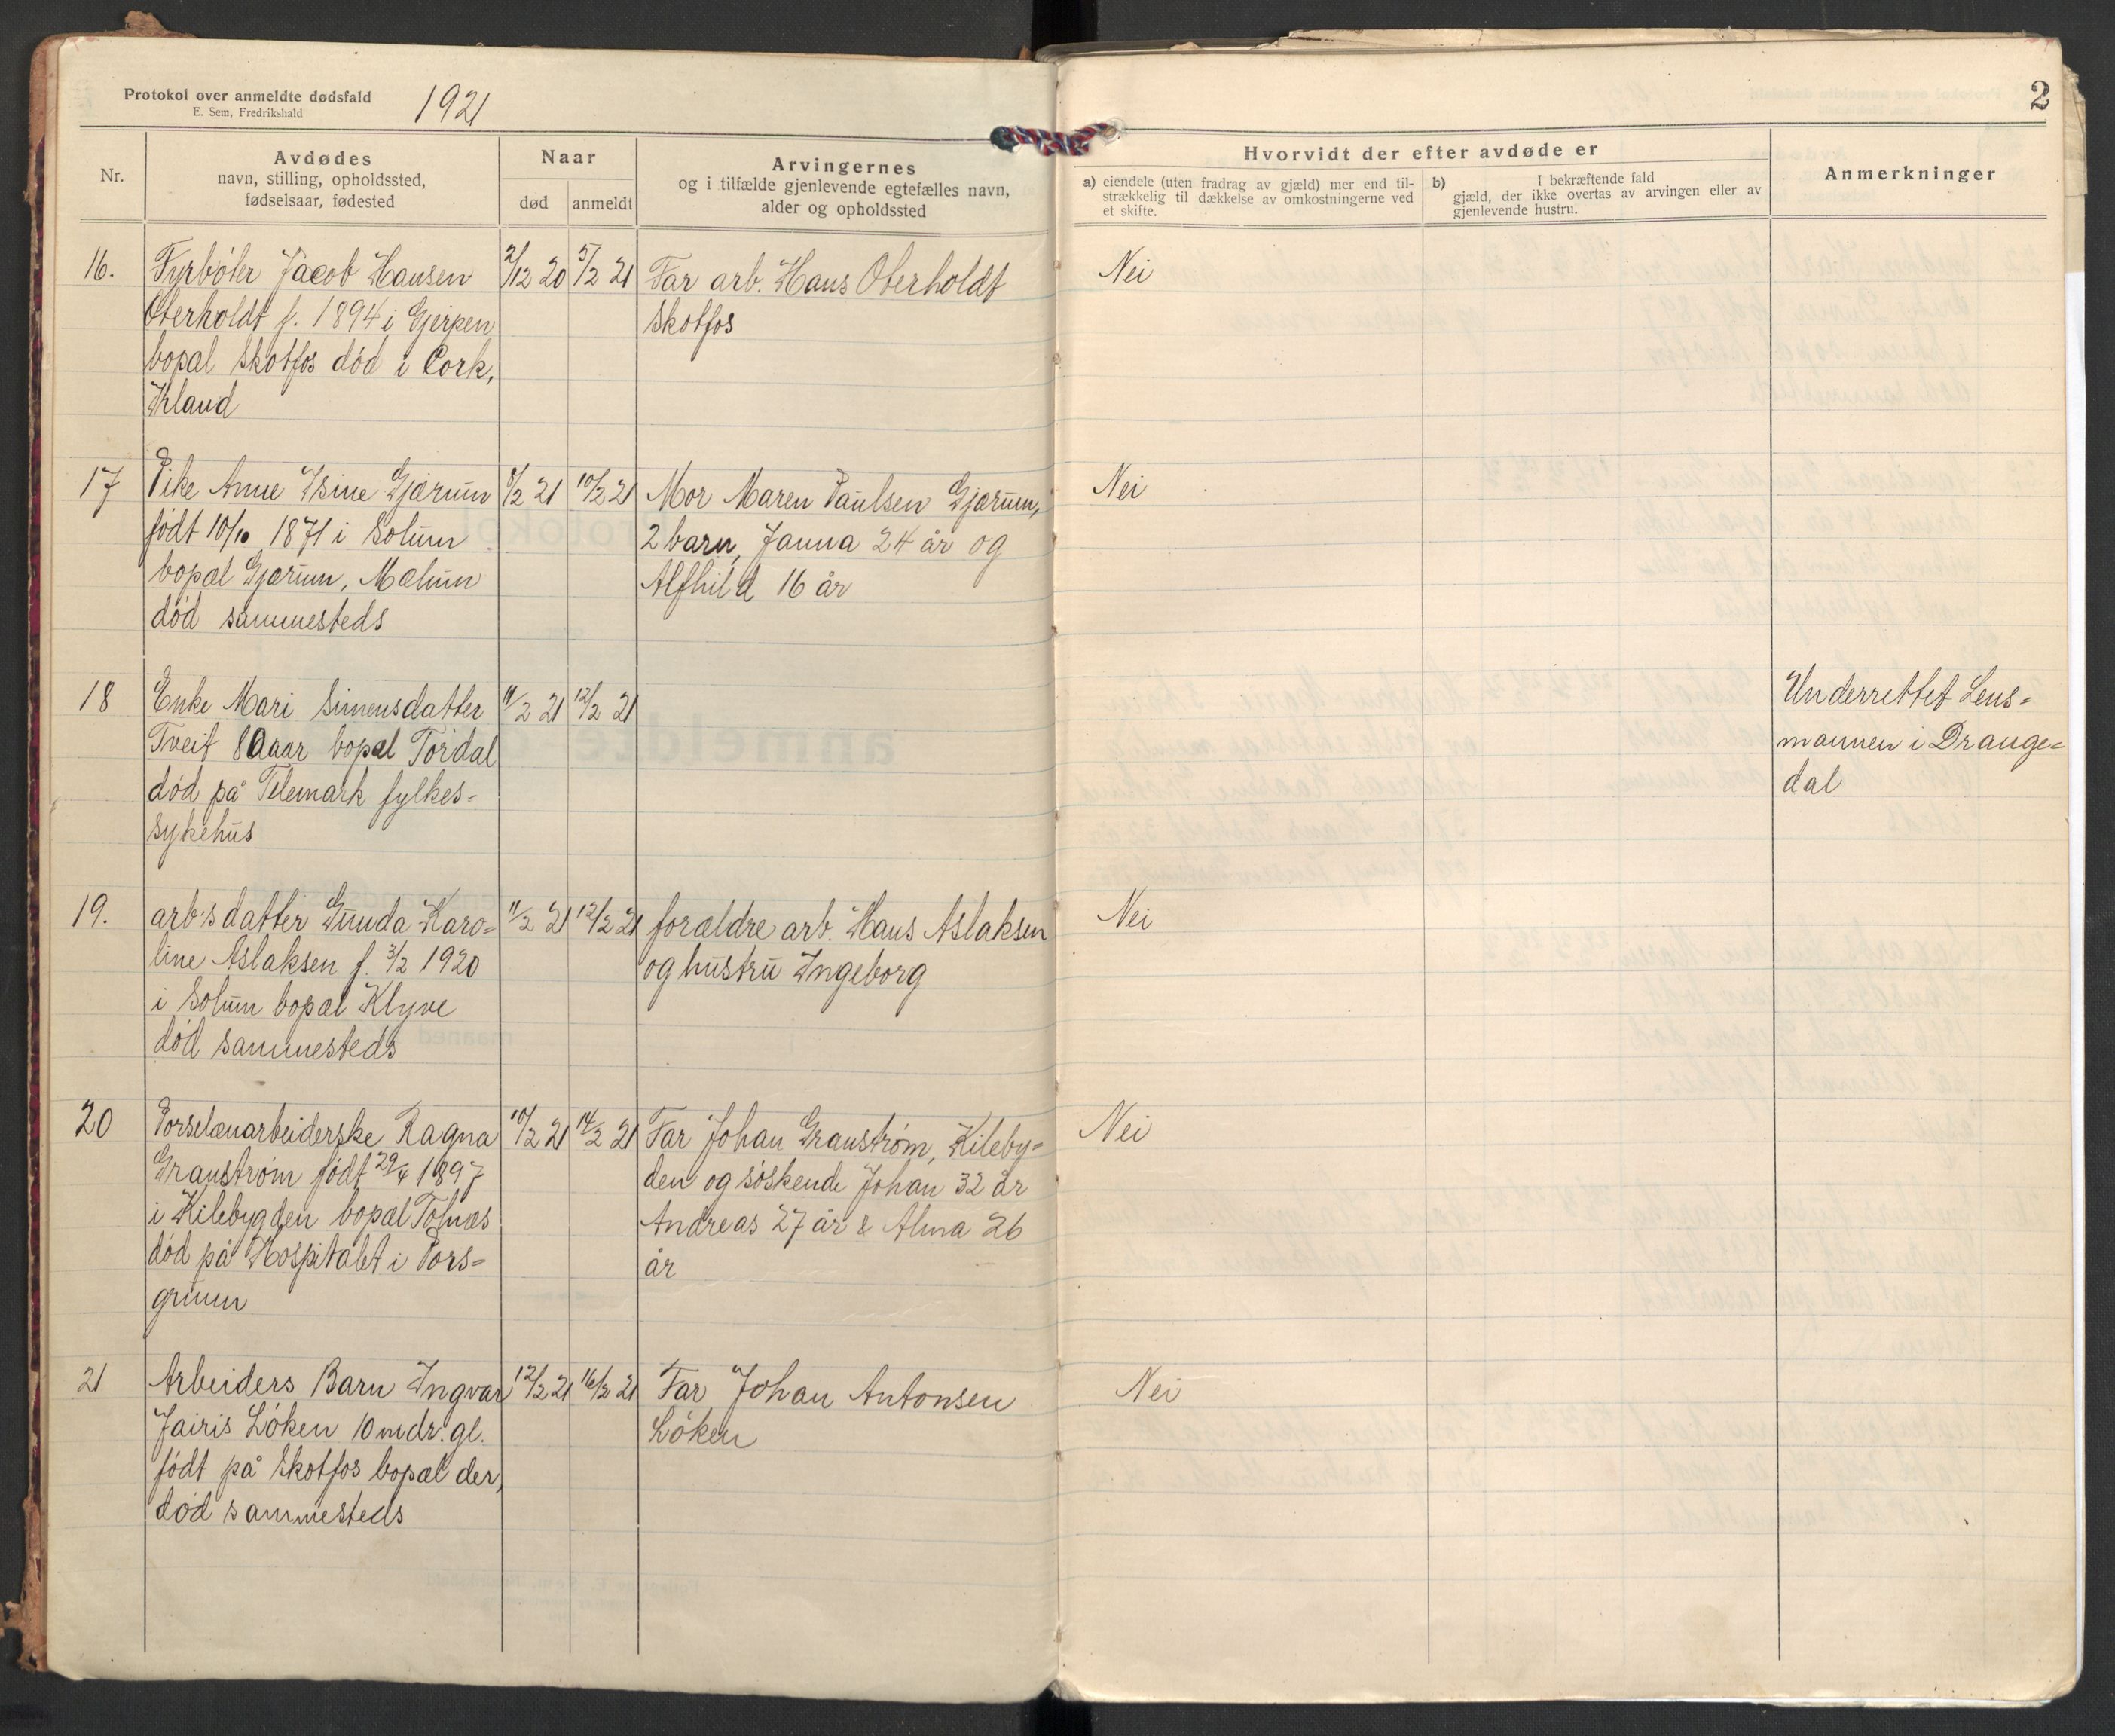 Protokol over anmeldte dødsfald
E. Sem, Fredrikshald
1921
2
Nr.
Avdødes
navn, stilling, opholdssted,
fødselsaar, fødested
Naar
død
anmeldt
Arvingernes
og i tilfælde gjenlevende egtefælles navn,
alder og opholdssted
Hvorvidt der efter avdøde er
a) eiendele (uten fradrag av gjæld) mer end til-
strækkelig til dækkelse av omkostningerne ved
et skifte.
b) I bekræftende fald
gjæld, der ikke overtas av arvingen eller av
gjenlevende hustru.
Anmerkninger
16.
Fyrbøter Jacob Hansen
Oterholdt f. 1894 i Gjerpen
bopæl Skotfos død i Cork,
Irland
2/12 20
5/2 21
Far arb. Hans Oterholdt
Skotfos
Nei
17
Pike Anne Isine Gjærum
født 10/10 1871 i Solum
bopæl Gjærum, Mælum
død sammesteds
8/2 21
10/2 21
Mor Maren Paulsen Gjærum,
2 barn, Janna 24 år og
Alfhild 16 år
Nei
18
Enke Mari Simensdatter
Tveit 80 aar bopæl Tørdal
død på Telemark fylkes=
sykehus
11/2 21
12/2 21
Underrettet Lens=
mannen i Drange=
dal
19.
arb's datter Gunda Karo=
line Aslaksen f. 3/2 1920
i Solum bopæl Klyve
død sammesteds
11/2 21
12/2 21
forældre arb. Hans Aslaksen
og hustru Ingeborg
Nei
20
Porselænarbeiderske Ragna
Granstrøm født 29/4 1897
i Kilebygden bopæl Tolnæs
død på Hospitalet i Pors=
grunn
10/2 21
14/2 21
Far Johan Granstrøm, Kileby=
den og søskende Johan 32 år
Andreas 27 år & Alma 26
år
Nei
21
Arbeiders Barn Ingvar
Jairis Løken 10 mdr. gl.
født på Skotfos bopæl der,
død sammesteds
12/2 21
16/2 21
Far Johan Antonsen
Løken
Nei